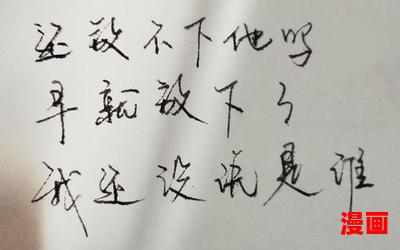 还放不下他吗
早就放下了
我还没说是谁
漫画